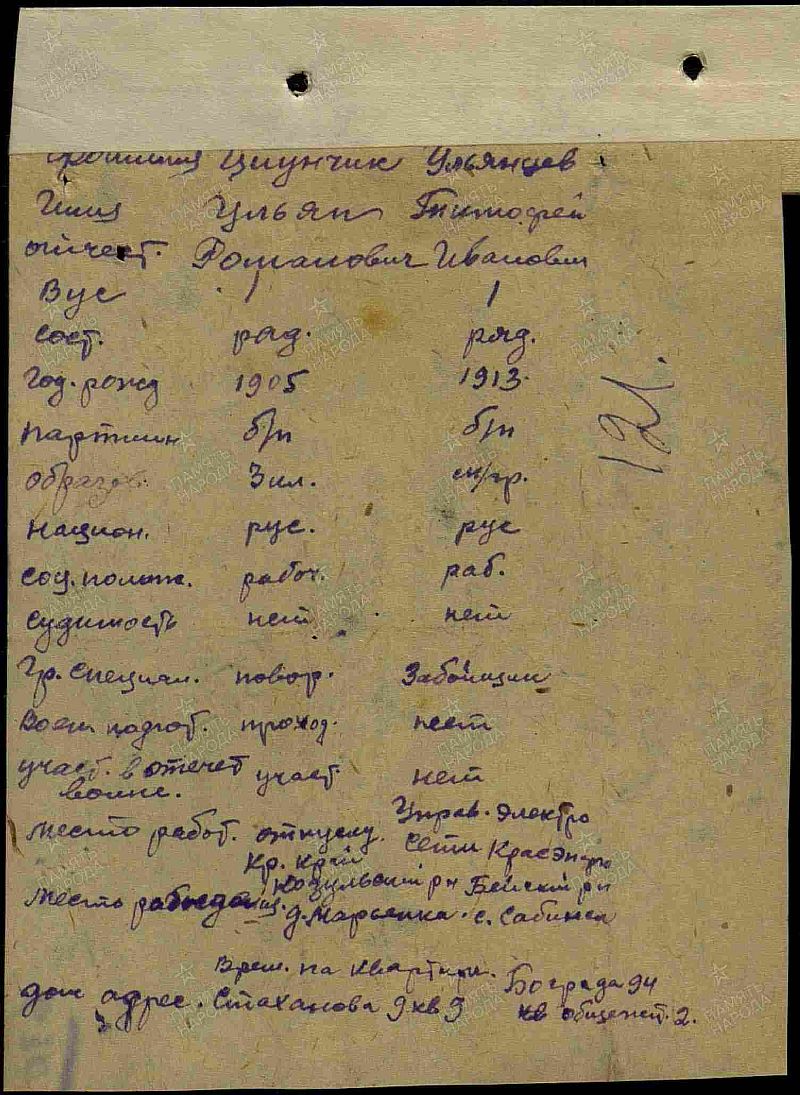 Фамилия Циунчик Ульянцев
Имя Ульян Тимофей
отчест. Романович Иванович
Вус 1 1
сост. ряд. ряд.
год. рожд 1905 1913.
партийн б/п б/п
образов. 3 кл. м/гр.
национ. рус. рус
соц. полож. рабоч. раб.
судимость нет нет
121.
Гр. специал. повар. Забойщик
Воен. подгот. проход. нет
участ. в отечет участ. нет
войне.
Управ. электро
место работ. отпуску. сети КрасЭнерго
Кр. край
Козульский рн Бейский рн
место рождения. д. Марьевка. с. Сабинка
Врем. на квартире.
Бограда 94
дом адрес. Стаханова 9 кв 9
кв общежит. 2.
ПАМЯТЬ НАРОДА